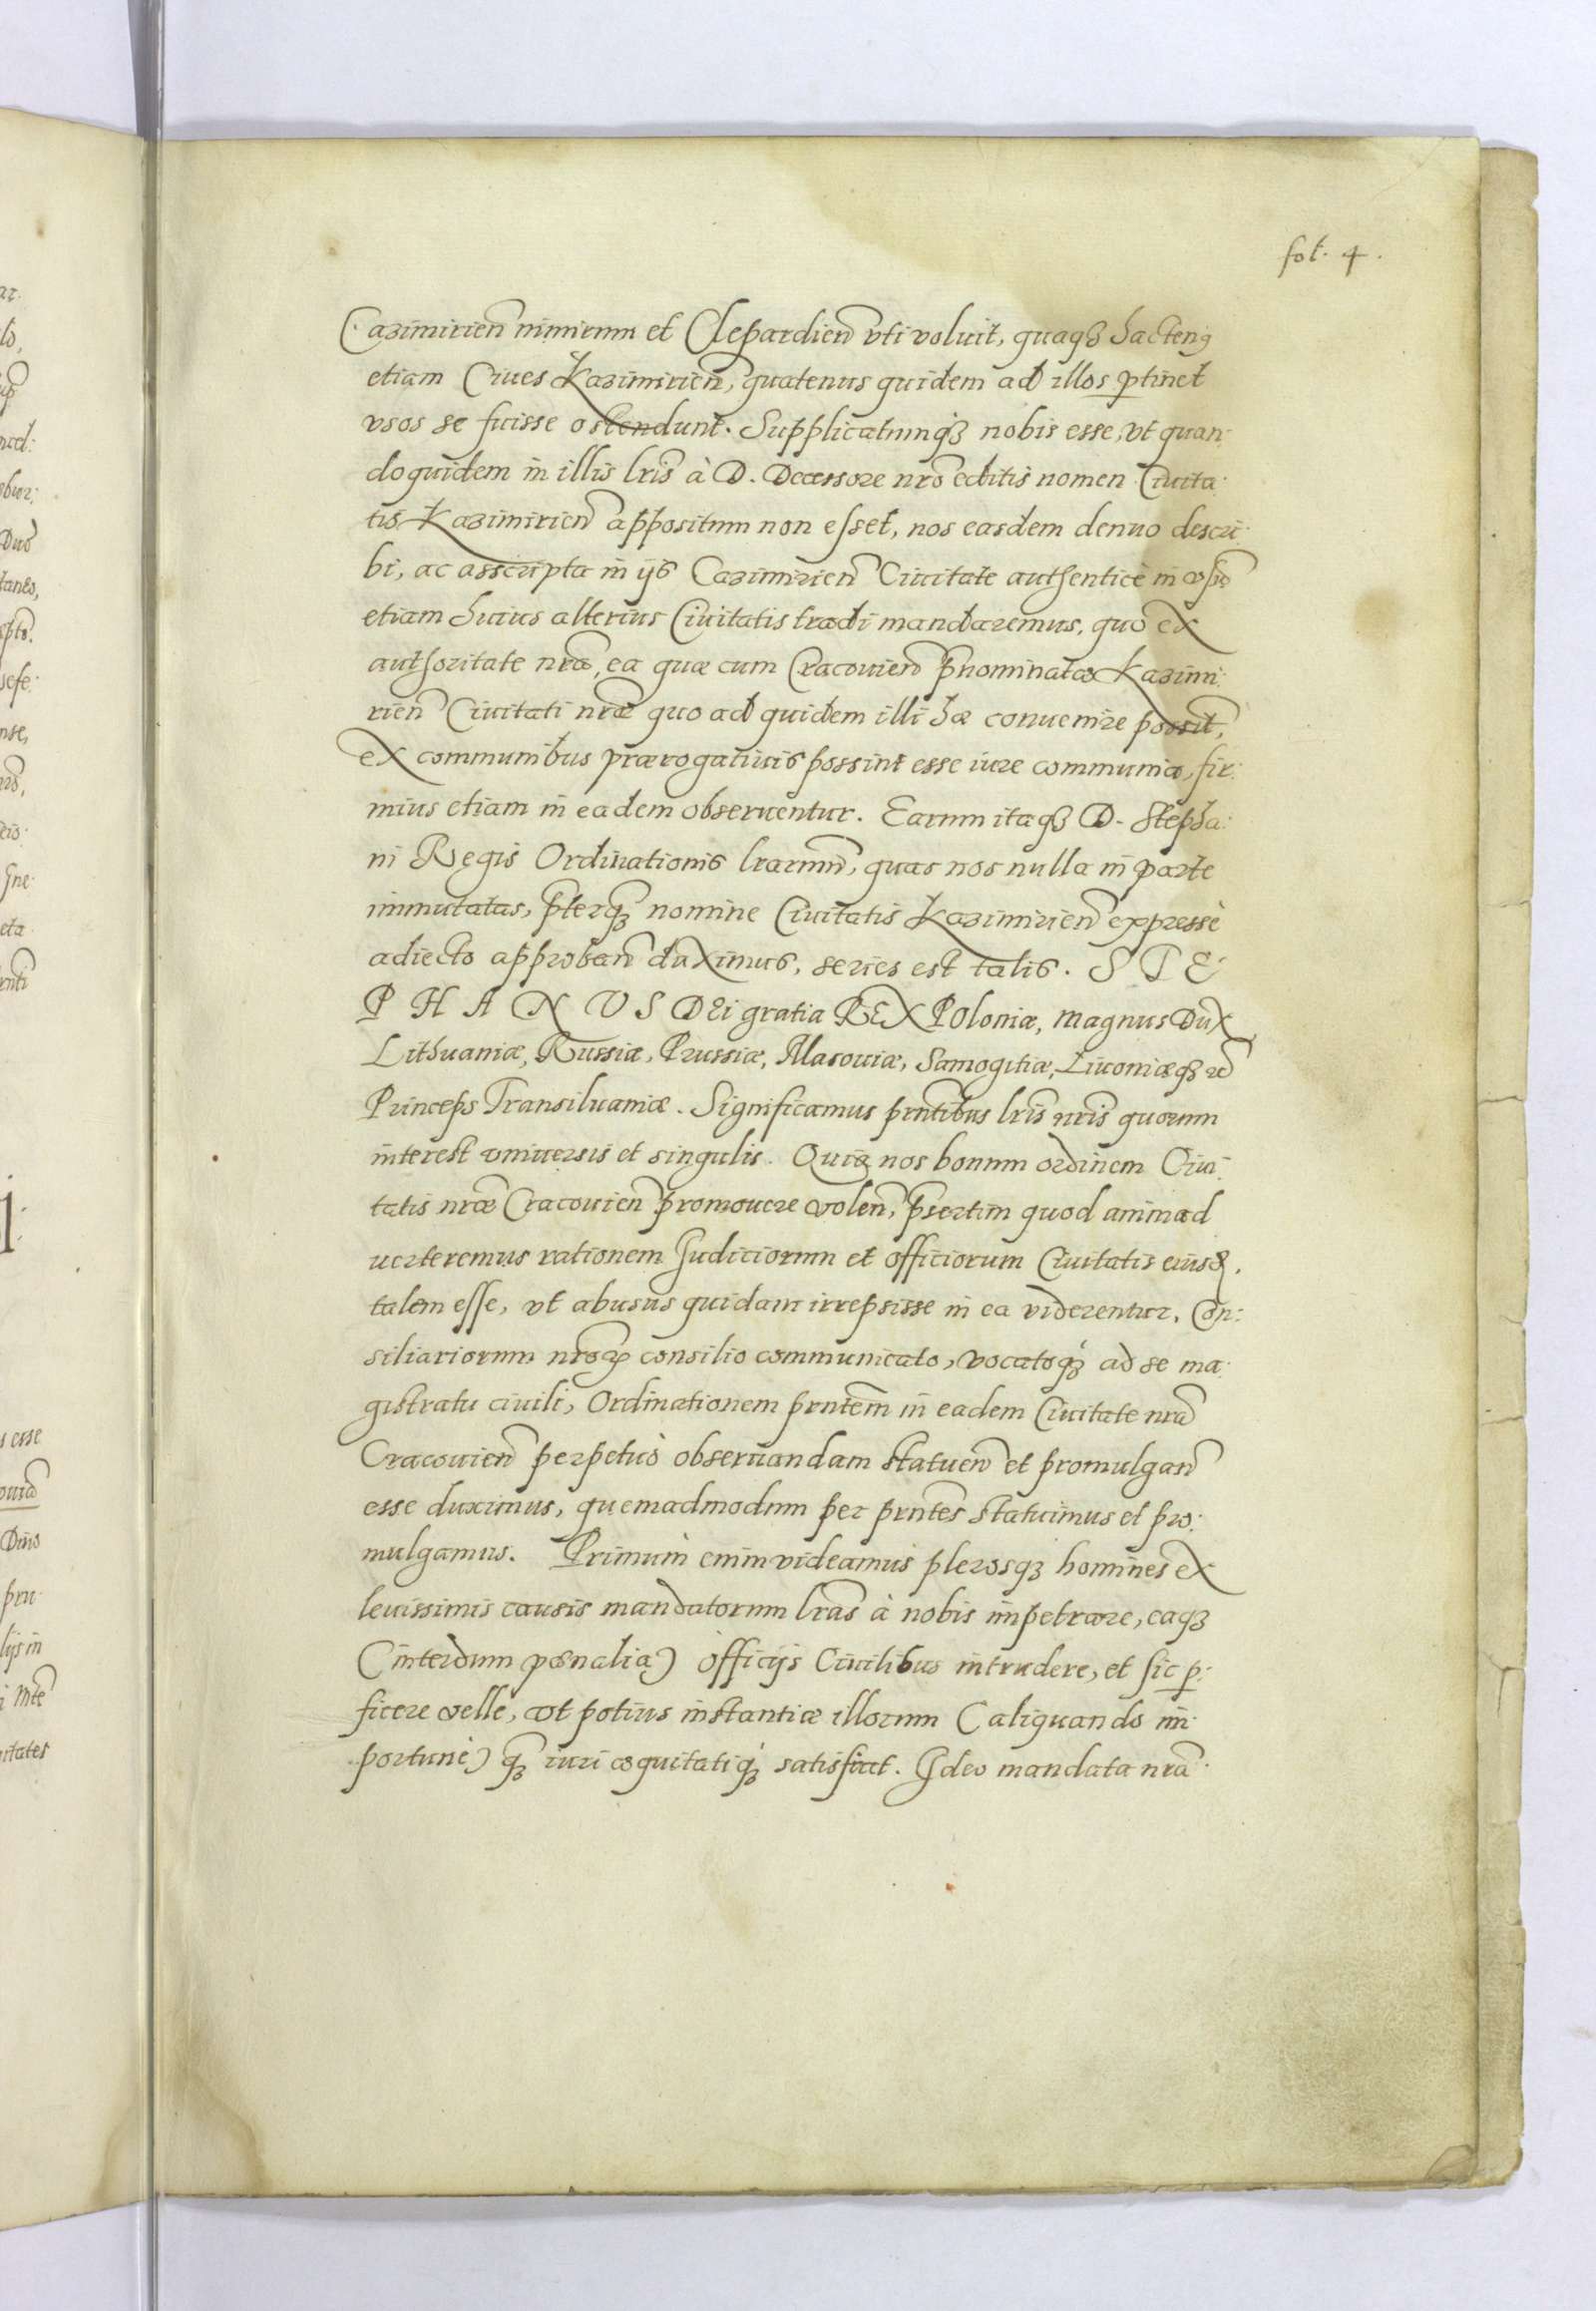 fol. 4.
Cazimirien̄ nimirum et Clepardien̄ vti voluit, quaqʒ hactenꝰ
etiam Ciues Kazimirien̄, quatenus quidem ad illos ꝑtinet
vsos se fuisse ostendunt. Supplicatumqʒ nobis esse, vt quan:
doquidem in illis lr̄is à D. Decessore nr̄o editis nomen Ciuita:
tis Kazimirien̄ appositum non esset, nos easdem denuo descri:
bi, ac asscripta in ijs Cazimirien̄ Ciuitate authenticè in vsū
etiam huius alterius Ciuitatis tradi mandaremus, quo ex
authoritate nr̄a, ea quæ cum Cracouien̄ p̄nominatæ Kazimi:
rien̄ Ciuitati nr̄æ quo ad quidem illi hæ conuenire possit,
ex communibus prærogatiuis possint esse iure communia, fir:
mius etiam in eadem obseruentur. Earum itaqʒ D. Stepha:
ni Regis Ordinationis lr̄arum, quas nos nulla in parte
immutatas, p̄terqʒ nomine Ciuitatis Kazimirien̄ expressè
adiecto approban̄ duximus, series est talis. STE:
PHANVS DEi gratia REX POloniæ, magnus DuX
Lithuaniæ, Russiæ, Prussiæ, Masouiæ, Samogitiæ, Liuoniæqʒ ꝛc̄
Princeps Transiluaniæ. Significamus pr̄ntibus lr̄is nr̄is quorum
interest vniuersis et singulis. Quia nos bonum ordinem Ciui:
tatis nr̄æ Cracouien̄ promouere volen̄, p̄sertim quod animad
uerteremus rationem Judiciorum et officiorum Ciuitatis eiusd.
talem esse, vt abusus quidam irrepsisse in ea viderentur, Con:
siliariorum nr̄oꝝ consilio communicato, vocatoqʒ ad se ma:
gistratu ciuili, Ordinationem pr̄ntem in eadem Ciuitate nr̄a
Cracouien̄ perpetuò obseruandam statuen̄ et promulgan̄
esse duximus, quemadmodum per pr̄ntes statuimus et pro:
mulgamus. Primùm enim videamus plerosqʒ homines ex
leuissimis causis mandatorum lr̄as à nobis impetrare, eaqʒ
(interdum pœnalia) officijs Ciuilibus intrudere, et sic ꝑ:
ficere velle, vt potius instantiæ illorum (aliquando im:
portunè) qʒ iuri æquitatiqʒ satisfiat. Ideo mandata nr̄a